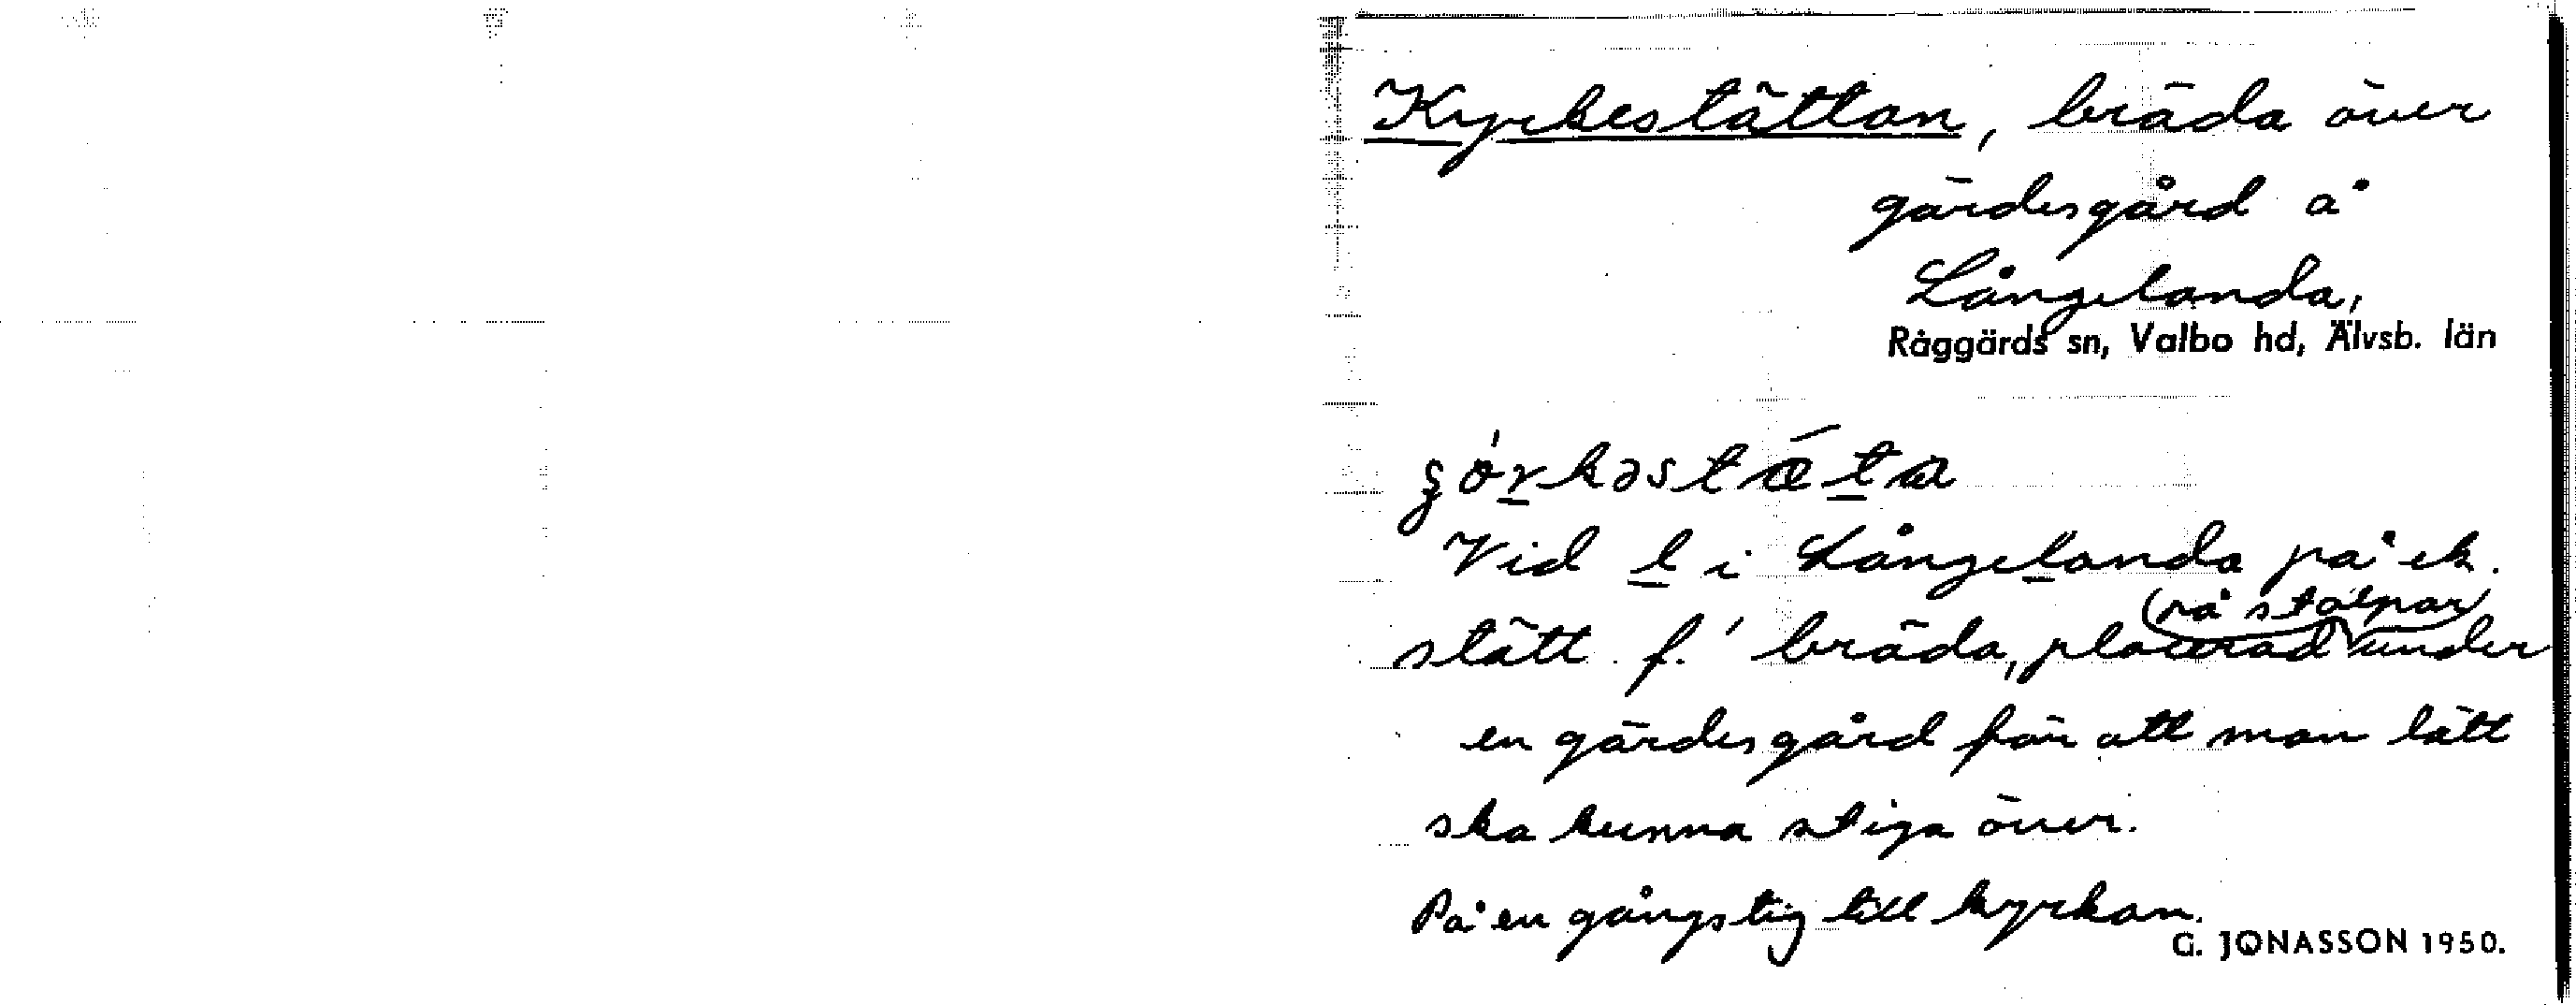 Kyrkestättan, bräda över
gärdesgård å
Långelanda,
Råggärds sn, Valbo hd, Älvsb. län
Vid l i Långelanda på ek.
stätt f. ' bräda, placerad (på stolpar) under
en gärdesgård för att man lätt
ska kunna stiga över.
På en gångstig till kyrkan.
G. JONASSON 1950.